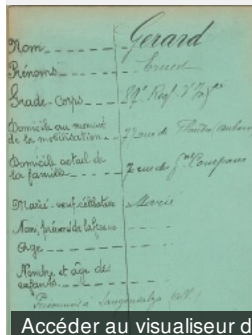 Nom Gerard
Prénoms Ernest
Grade-Corps Régt d'Inf
Domicile au moment
de la mobilisation rue de Flandre
Domicile actuel de
la famille 7 rue du Gal Compans
Marié-veuf-célibataire Marié
Nom, prénoms de la
Age
Nombre et âge des
enfants
Prisonnier à Langensalza All.
Accéder au visualiseur d